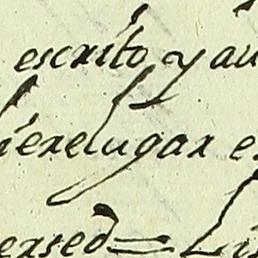 escrito y au
iere lugar e
ersed = Li